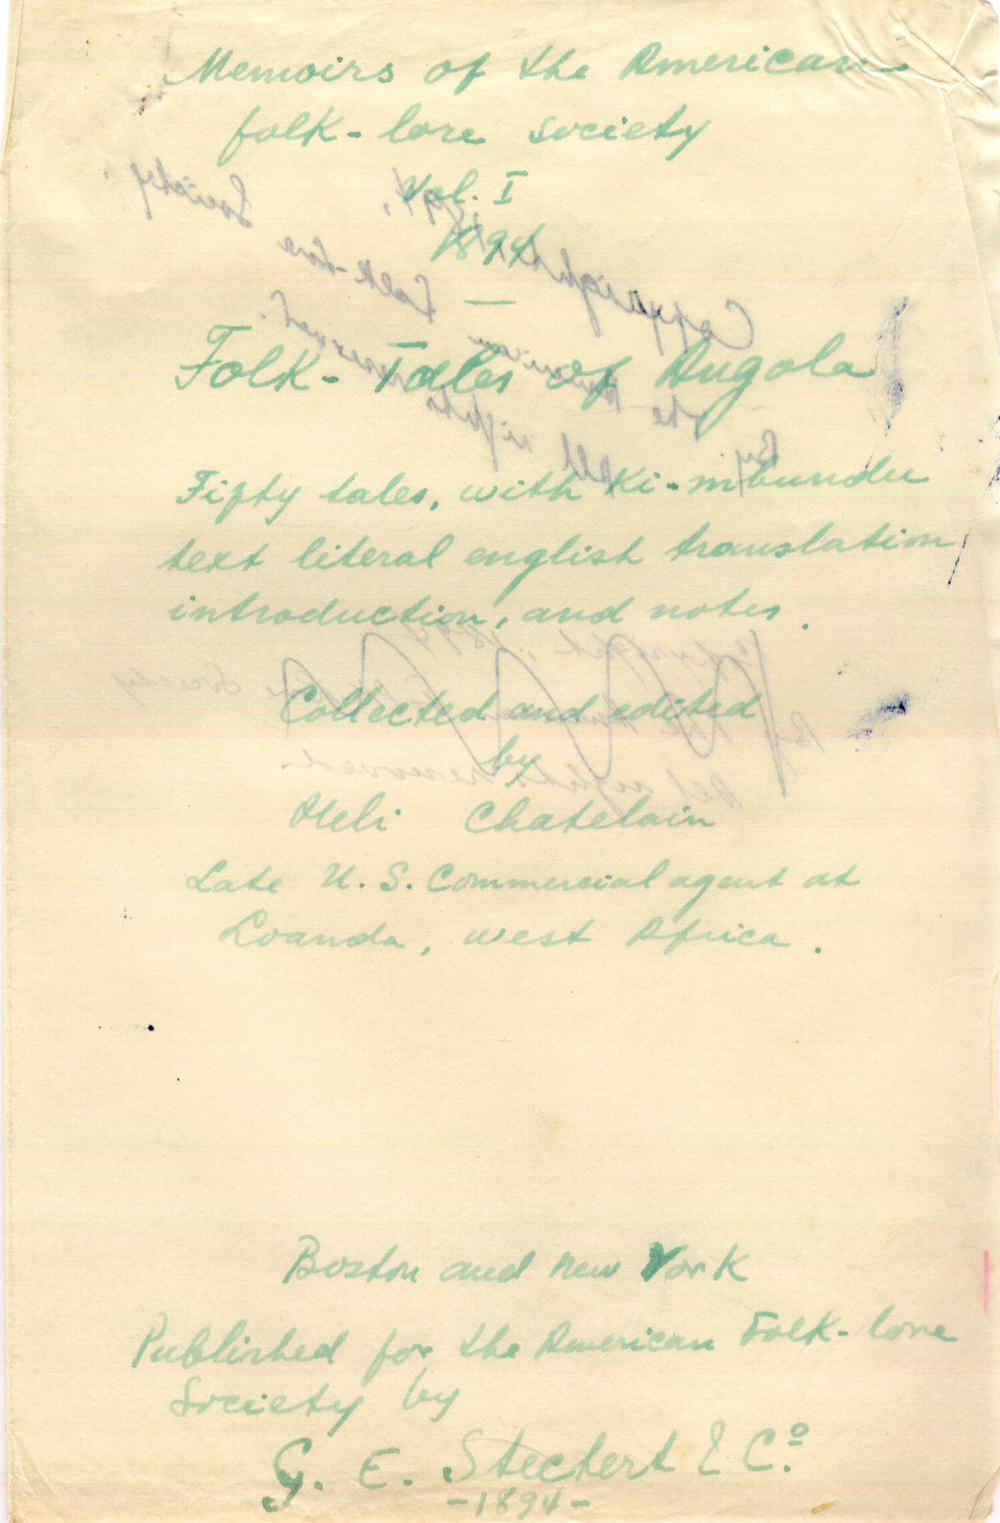 Memoirs of the American
folk-lore society
Vol. I
1894
—
Folk-Tales of Angola
Fifty tales, with Ki-mbundu
text literal english translation
introduction, and notes.
Collected and edited
by
Heli Chatelain
Late U.S. Commercial agent at
Loanda, west Africa.
Boston and New York
Published for the American Folk-lore
Society by
G. E. Stechert & Co.
-1894-
Copyright, 1894,
By the American Folk-Lore Society.
All rights reserved.
Copyright, 1894
By the American Folk-Lore Society
All rights reserved.